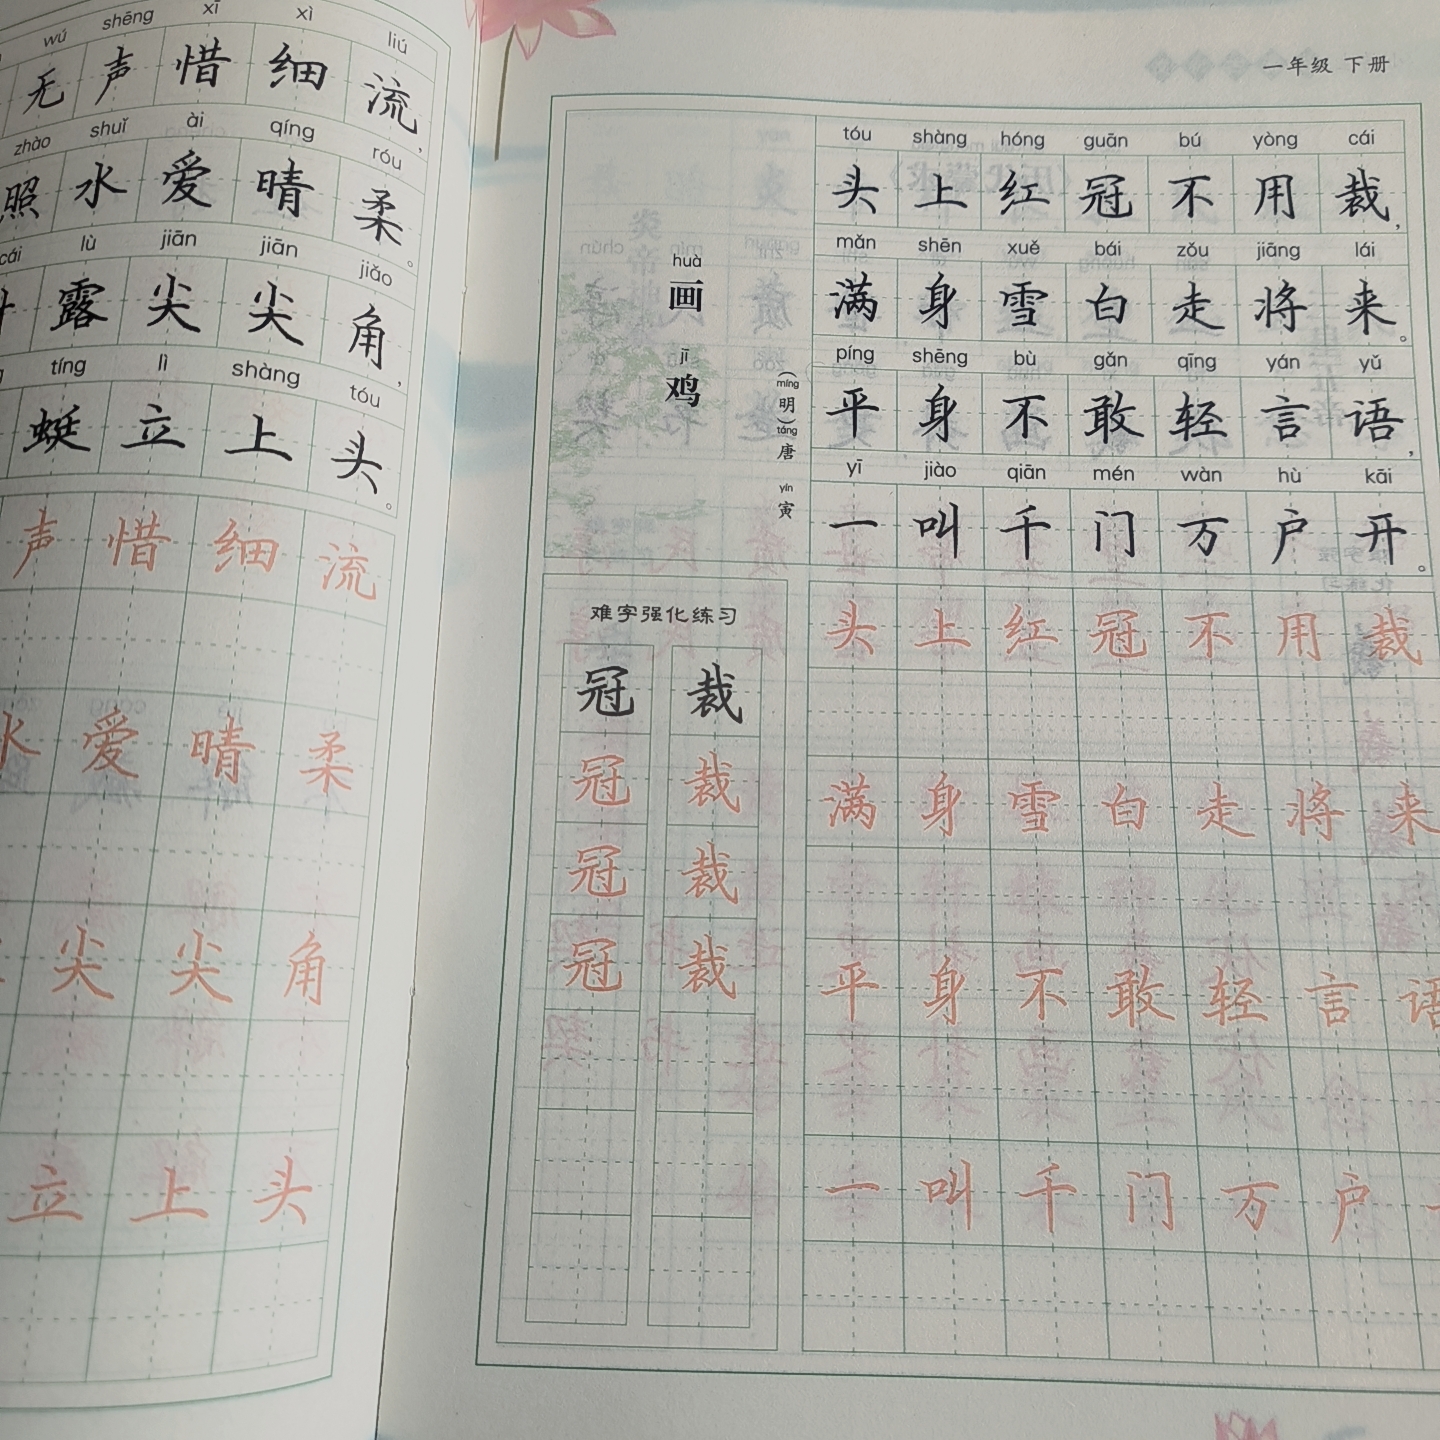 wú shēng xī xì liú
无声惜细流，
zhào shuǐ ài qíng róu
照水爱晴柔。
cái lù jiān jiān jiǎo
露尖尖角，
tíng lì shàng tóu
蜓立上头。
声惜细流
水爱晴柔
尖尖角
立上头
一年级 下册
huà
画
jī
鸡
(míng)
（明）
táng
唐
yín
寅
tóu shàng hóng guān bú yòng cái
头上红冠不用裁，
mǎn shēn xuě bái zǒu jiāng lái
满身雪白走将来。
píng shēng bù gǎn qīng yán yǔ
平身不敢轻言语，
yī jiào qiān mén wàn hù kāi
一叫千门万户开。
难字强化练习
冠 裁
冠 裁
冠 裁
冠 裁
头上红冠不用裁
满身雪白走将来
平身不敢轻言语
一叫千门万户